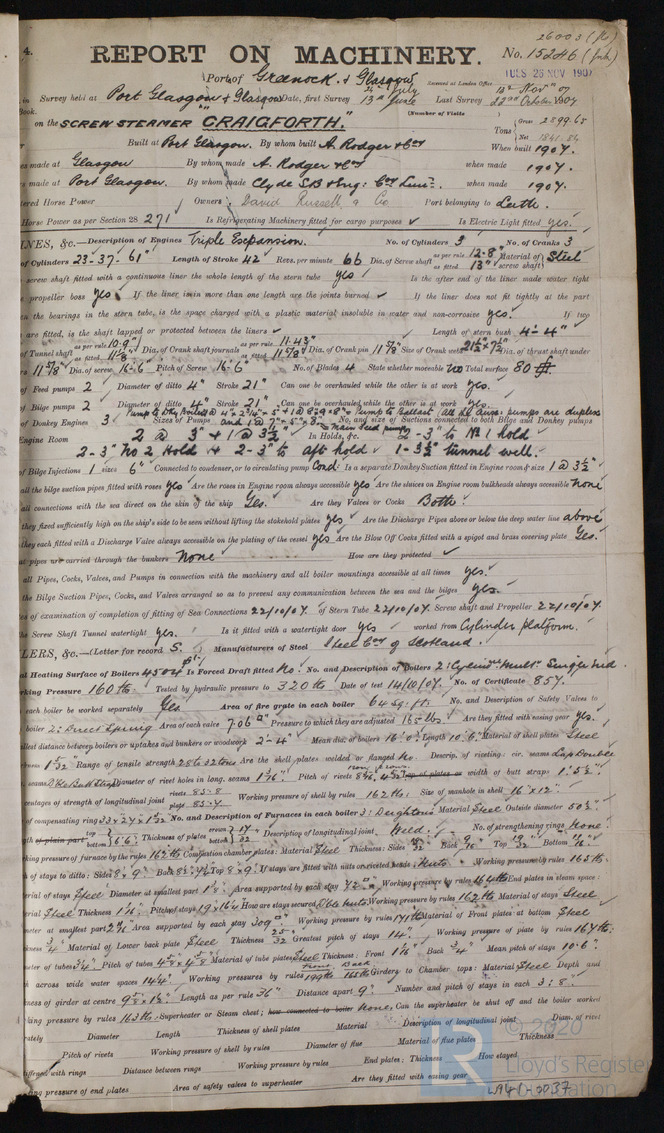 26003 (fe)
4.
REPORT ON MACHINERY. No. 15246
Port of Greenock & Glasgow Received at London Office TUES 26 NOV 1907
in Survey held at Port Glasgow & Glasgow Date, first Survey 13th June Last Survey 22nd October 1907
Book. (Number of Visits
on the SCREW STEAMER "CRAIGFORTH." Tons Gross 2899.65 Net 1841.84
Built at Port Glasgow. By whom built A. Rodger & Coy When built 1907.
s made at Glasgow By whom made A. Rodger & Coy when made 1907.
s made at Port Glasgow. By whom made Clyde S.B & Eng: Coy Limd. when made 1907.
tered Horse Power Owners David Russell & Co Port belonging to Leith.
Horse Power as per Section 28 271 Is Refrigerating Machinery fitted for cargo purposes Is Electric Light fitted yes.
INES, &c.—Description of Engines Triple Expansion. No. of Cylinders 3 No. of Cranks 3
of Cylinders 23-37-61" Length of Stroke 42" Revs. per minute 66 Dia. of Screw shaft as per rule 12.8" as fitted 13" Material of screw shaft Steel
screw shaft fitted with a continuous liner the whole length of the stern tube yes Is the after end of the liner made water tight
propeller boss yes If the liner is in more than one length are the joints burned If the liner does not fit tightly at the part
n the bearings in the stern tube, is the space charged with a plastic material insoluble in water and non-corrosive yes. If two
are fitted, is the shaft lapped or protected between the liners Length of stern bush 4'-4"
of Tunnel shaft as per rule 10.9" as fitted 11⅜" Dia. of Crank shaft journals as per rule 11.43" as fitted 11⅞" Dia. of Crank pin 11⅞" Size of Crank webs 21½"x7½" Dia. of thrust shaft under
rs 11⅞" Dia. of screw 16-6 Pitch of Screw 16-6" No. of Blades 4 State whether moveable no Total surface 80 ft.
of Feed pumps 2 Diameter of ditto 4" Stroke 21" Can one be overhauled while the other is at work yes.
of Bilge pumps 2 Diameter of ditto 4" Stroke 21" Can one be overhauled while the other is at work yes.
of Donkey Engines 3 Sizes of Pumps No. and size of Suctions connected to both Bilge and Donkey pumps
Engine Room 2 @ 3" & 1 @ 3½" In Holds, &c. 2-3" to No 1 hold
2-3" No 2 Hold & 2-3" to aft hold 1-3½" tunnel well.
of Bilge Injections 1 sizes 6" Connected to condenser, or to circulating pump Cond: Is a separate Donkey Suction fitted in Engine room & size 1 @ 3½"
all the bilge suction pipes fitted with roses yes Are the roses in Engine room always accessible yes Are the sluices on Engine room bulkheads always accessible none
all connections with the sea direct on the skin of the ship Yes. Are they Valves or Cocks Both.
they fixed sufficiently high on the ship's side to be seen without lifting the stokehold plates yes Are the Discharge Pipes above or below the deep water line above
they each fitted with a Discharge Valve always accessible on the plating of the vessel yes Are the Blow Off Cocks fitted with a spigot and brass covering plate Yes.
at pipes are carried through the bunkers None How are they protected
all Pipes, Cocks, Valves, and Pumps in connection with the machinery and all boiler mountings accessible at all times yes.
the Bilge Suction Pipes, Cocks, and Valves arranged so as to prevent any communication between the sea and the bilges yes.
es of examination of completion of fitting of Sea Connections 22/10/07. of Stern Tube 22/10/07. Screw shaft and Propeller 22/10/07.
he Screw Shaft Tunnel watertight yes. Is it fitted with a watertight door yes worked from Cylinder Platform.
LERS, &c.—(Letter for record S. Manufacturers of Steel Steel Coy of Scotland.
al Heating Surface of Boilers 4504 Is Forced Draft fitted No. No. and Description of Boilers 2: Cylind. Mult. Single End.
rking Pressure 160 lbs. Tested by hydraulic pressure to 320 lbs Date of test 14/10/07. No. of Certificate 857.
each boiler be worked separately Yes. Area of fire grate in each boiler 64 sq. ft. No. and Description of Safety Valves to
boiler 2: Direct Spring Area of each valve 7.06 Pressure to which they are adjusted 165 lbs. Are they fitted with easing gear yes.
llest distance between boilers or uptakes and bunkers or woodwork 2'-4" Mean dia. of boilers 16'.0" Length 10'.6" Material of shell plates Steel
kness 1 5/32 Range of tensile strength 28 to 32 tons Are the shell plates welded or flanged No. Descrip. of riveting: cir. seams Lap Double
seams Diameter of rivet holes in long. seams 1 3/16" Pitch of rivets Lap of plates or width of butt straps 1'.5½".
centages of strength of longitudinal joint rivets 85.8 plate 85.7. Working pressure of shell by rules 162 lbs: Size of manhole in shell 16"x12".
of compensating ring 33x27x1 5/32 No. and Description of Furnaces in each boiler 3: Deightons Material Steel Outside diameter 50½".
gth of plain part top bottom 6'.6: Thickness of plates crown 17/32 bottom Description of longitudinal joint Weld. No. of strengthening rings None.
king pressure of furnace by the rules 162 lbs Combustion chamber plates: Material Steel Thickness: Sides Back Top 19/32 Bottom
h of stays to ditto: Sides 8"x9" Back Top 8"x9" If stays are fitted with nuts or riveted heads Nuts Working pressure by rules 165 lbs.
erial of stays Steel Diameter at smallest part 1⅛" Area supported by each stay 72 Working pressure by rules 164 lbs End plates in steam space:
erial Steel Thickness 1 1/16". Pitch of stays 19"x16½" How are stays secured Dble nuts Working pressure by rules 162 lbs Material of stays Steel
meter at smallest part Area supported by each stay 309 Working pressure by rules 171 lbs Material of Front plates at bottom Steel
ckness ¾" Material of Lower back plate Steel Thickness 25/32 Greatest pitch of stays 14" Working pressure of plate by rules 167 lbs:
meter of tubes 3¼" Pitch of tubes Material of tube plates Steel Thickness: Front 1 1/16 Back ¾" Mean pitch of stays 10.6".
h across wide water spaces 14¼" Working pressures by rules Front 199 lbs Back 165 lbs Girders to Chamber tops: Material Steel Depth and
kness of girder at centre 9½x1½" Length as per rule 36" Distance apart 9" Number and pitch of stays in each 3: 8".
king pressure by rules 163 lbs. Superheater or Steam chest; how connected to boiler None. Can the superheater be shut off and the boiler worked
rately Diameter Length Thickness of shell plates Material Description of longitudinal joint Diam. of rivet
Pitch of rivets Working pressure of shell by rules Diameter of flue Material of flue plates Thickness
iffened with rings Distance between rings Working pressure by rules End plates: Thickness How stayed
king pressure of end plates Area of safety valves to superheater Are they fitted with easing gear
© 2020
Lloyd's Register
Foundation
LR
W941-0037